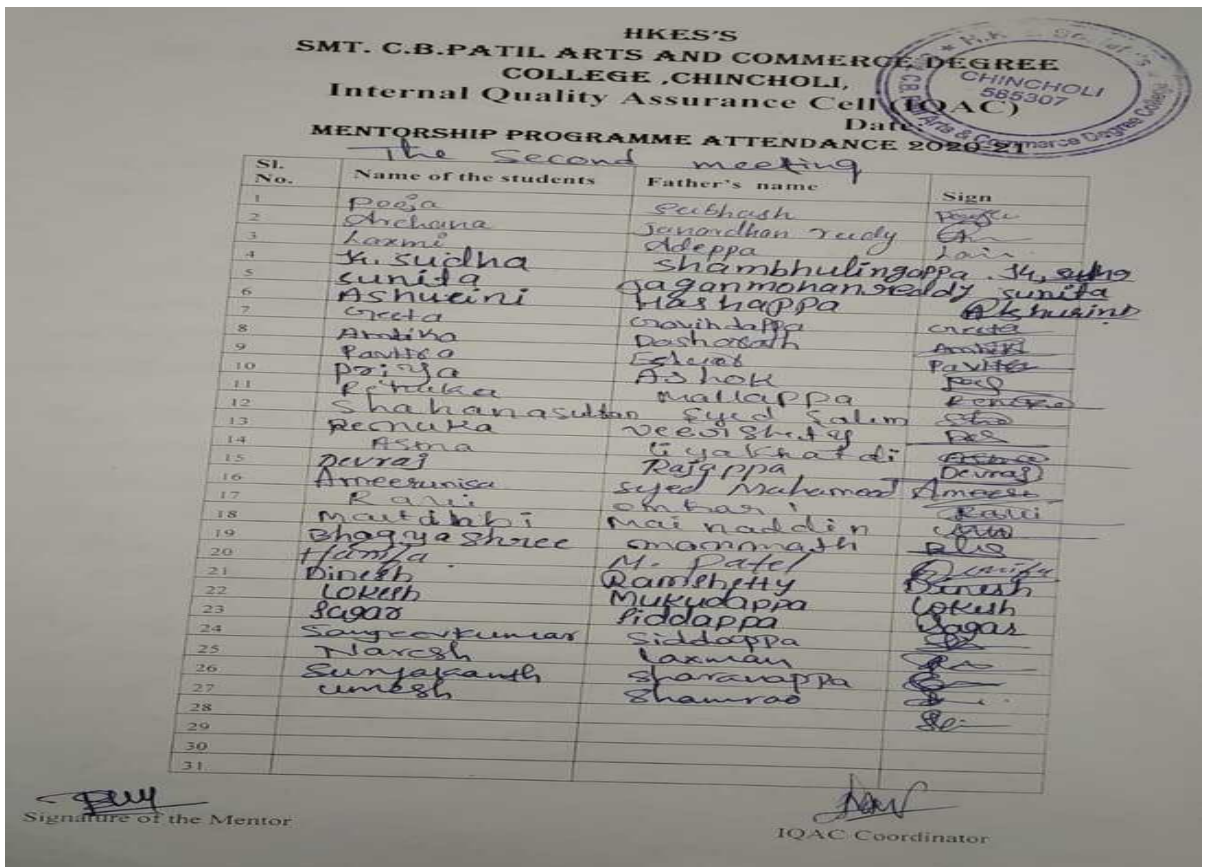 HKES'S
SMT. C.B.PATIL ARTS AND COMMERCE DEGREE
COLLEGE ,CHINCHOLI,
Internal Quality Assurance Cell (IQAC)
Date:
MENTORSHIP PROGRAMME ATTENDANCE 2020-21
CHINCHOLI
585307
C.B. Arts & Commerce Degree College
The Second meeting
Sl. No. Name of the students Father's name Sign
1 Pooja Subhash Pooja
2 Archana Janardhan reddy
3 Laxmi Adeppa
4 K. sudha Shambhulingappa K. sudha
5 sunita Jaganmohan reddy sunita
6 Ashwini Hashappa Ashwini
7 Geeta Govindappa Geeta
8 Ambika Dasharath Ambika
9 Pavitra Pavitra
10 Priya Ashok
11 Renuka Mallappa Renuka
12 Shahanasultan Syed Salim
13 Renuka Veerishetty
14 Asma Asma
15 Devraj Rajappa Devraj
16 Ameerunisa Syed Mahamood Ameer
17 Ravi Ravi
18 Mainaddin
19 Bhagyashree
20 M. Patel
21 Dinesh Ramshetty Dinesh
22 Lokesh Mukudappa Lokesh
23 Sagar Piddappa Sagar
24 Sangeevkumar Siddappa
25 Naresh Laxman
26 Suryakanth Sharanappa
27 Umesh Shamrao
28
29
30
31.
Signature of the Mentor
IQAC Coordinator